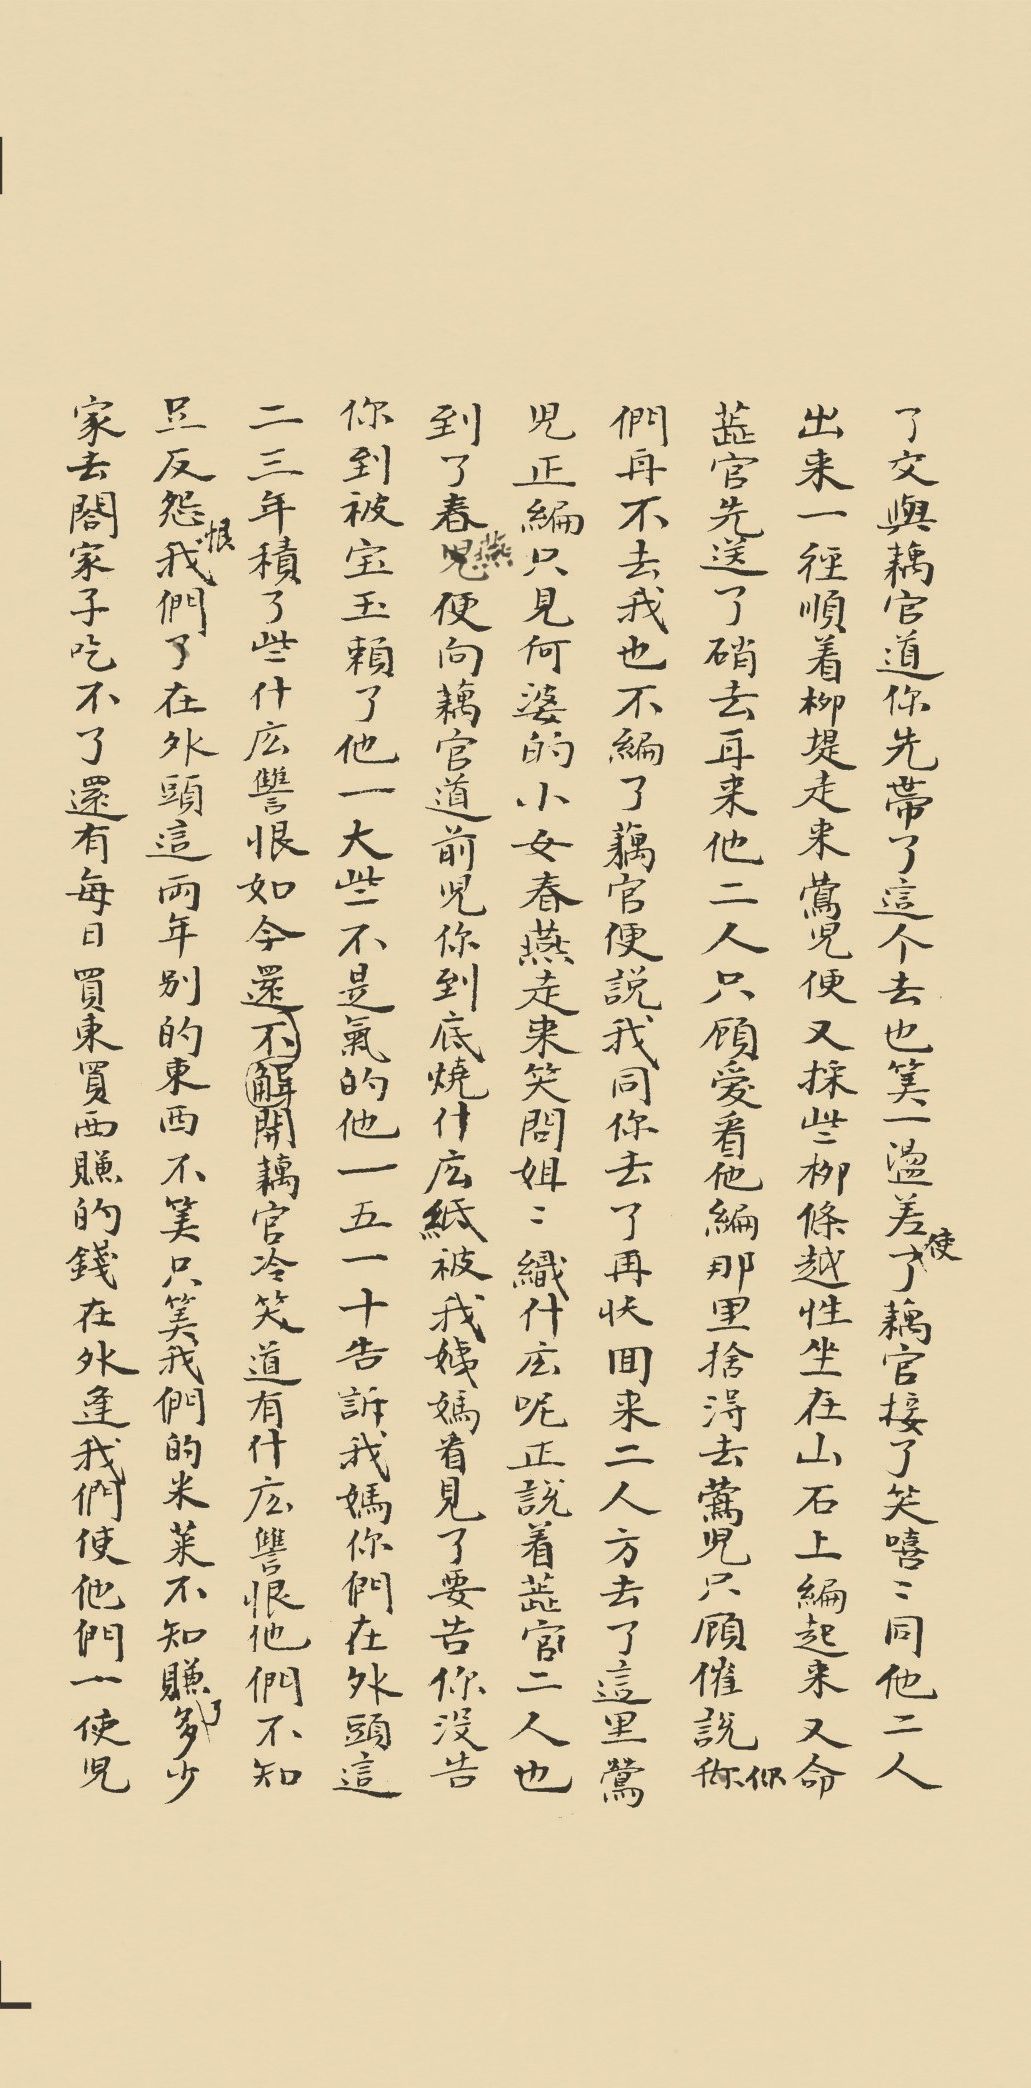 了交與藕官道你先帶了這个去也筭一盪差使了藕官接了笑嘻〻同他二人
出来一徑順着柳堤走来鶯児便又採些柳條越性坐在山石上編起来又命
蕋官先送了硝去再来他二人只顧愛看他編那里捨淂去鶯児只顧催說你
們再不去我也不編了藕官便說我同你去了再快回来二人方去了這里鶯
児正編只見何婆的小女春燕走来笑問姐〻織什広呢正說着蕋官二人也
到了春燕便向藕官道前児你到底燒什広紙被我姨媽看見了要告你没告
你到被宝玉賴了他一大些不是氣的他一五一十告訴我媽你們在外頭這
二三年積了些什広讐恨如今還不解開藕官冷笑道有什広讐恨他們不知
足反怨恨我們了在外頭這兩年别的東西不筭只筭我們的米菜不知賺了多少
家去閤家子吃不了還有每日買東買西賺的錢在外逢我們使他們一使児